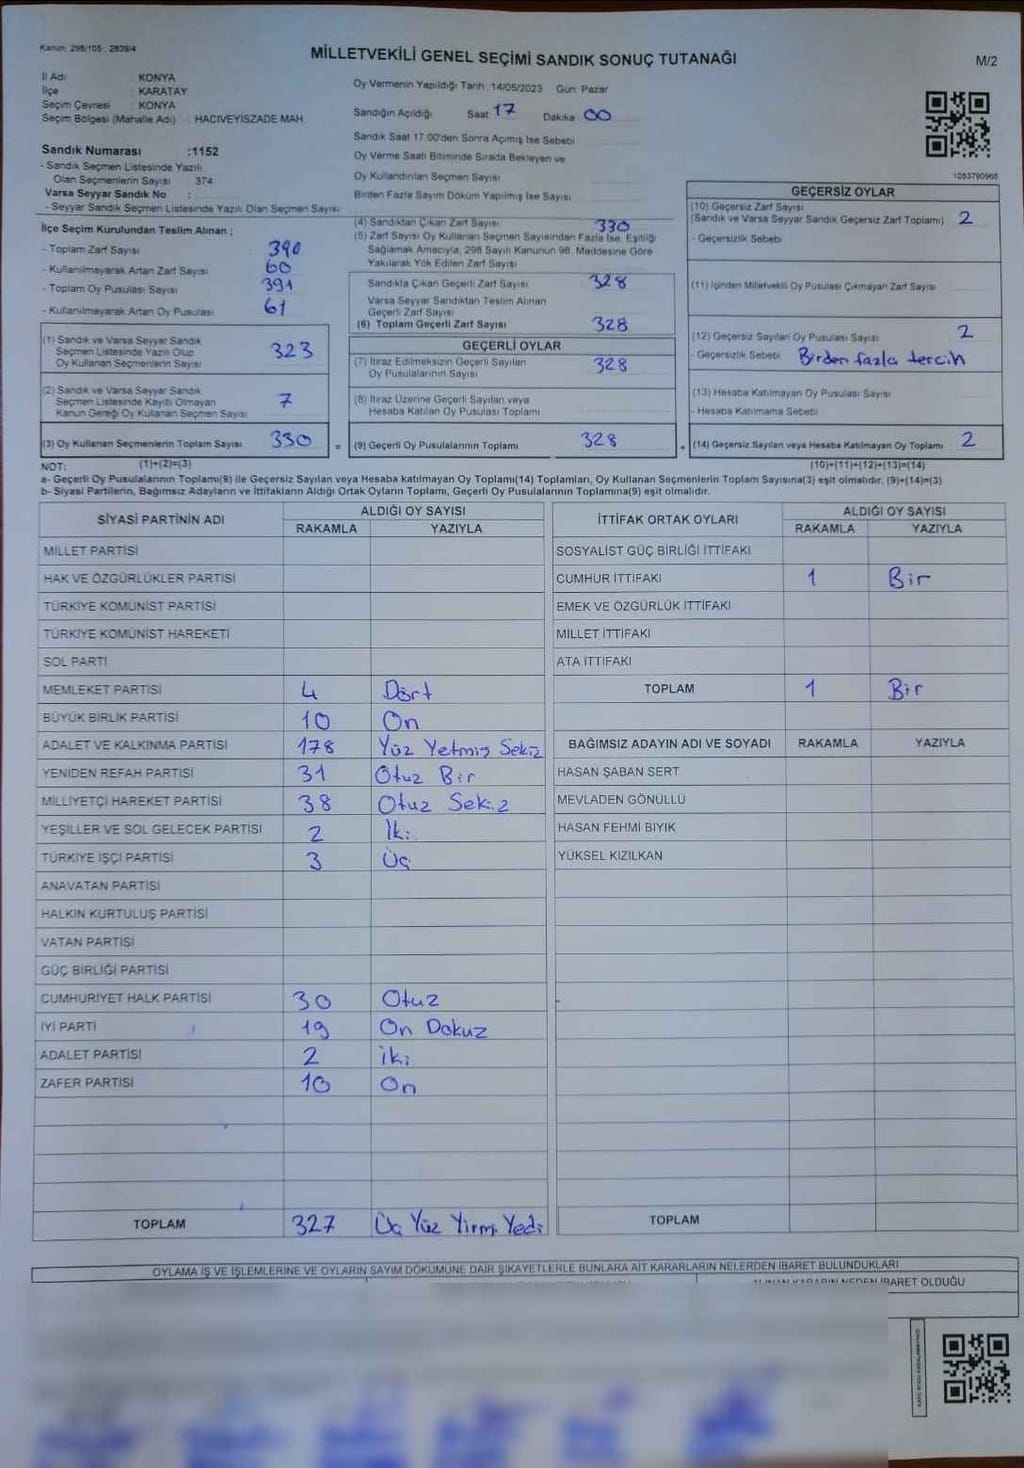 Kanun: 298/105 , 2839/4
MİLLETVEKİLİ GENEL SEÇİMİ SANDIK SONUÇ TUTANAĞI
M/2
İl Adı : KONYA
İlçe : KARATAY
Seçim Çevresi : KONYA
Seçim Bölgesi (Mahalle Adı) : HACIVEYISZADE MAH.
Sandık Numarası :1152
- Sandık Seçmen Listesinde Yazılı
Olan Seçmenlerin Sayısı : 374
Varsa Seyyar Sandık No :
- Seyyar Sandık Seçmen Listesinde Yazılı Olan Seçmen Sayısı
Oy Vermenin Yapıldığı Tarih : 14/05/2023 Gün: Pazar
Sandığın Açıldığı Saat: 17 Dakika 00
Sandık Saat 17.00'den Sonra Açımış İse Sebebi
Oy Verme Saati Bitiminde Sırada Bekleyen ve
Oy Kullandırılan Seçmen Sayısı
Birden Fazla Sayım Döküm Yapılmış İse Sayısı
1083790966
İlçe Seçim Kurulundan Teslim Alınan ;
- Toplam Zarf Sayısı 390
- Kullanılmayarak Artan Zarf Sayısı 60
- Toplam Oy Pusulası Sayısı 391
- Kullanılmayarak Artan Oy Pusulası 61
(1) Sandık ve Varsa Seyyar Sandık
Seçmen Listesinde Yazılı Olup
Oy Kullanan Seçmenlerin Sayısı 323
(2) Sandık ve Varsa Seyyar Sandık
Seçmen Listesinde Kayıtlı Olmayan
Kanun Gereği Oy Kullanan Seçmen Sayısı 7
(3) Oy Kullanan Seçmenlerin Toplam Sayısı 330
(4) Sandıktan Çıkan Zarf Sayısı 330
(5) Zarf Sayısı Oy Kullanan Seçmen Sayısından Fazla İse, Eşitliği
Sağlamak Amacıyla, 298 Sayılı Kanunun 98. Maddesine Göre
Yakılarak Yok Edilen Zarf Sayısı
Sandıkta Çıkan Geçerli Zarf Sayısı 328
Varsa Seyyar Sandıktan Teslim Alınan
Geçerli Zarf Sayısı
(6) Toplam Geçerli Zarf Sayısı 328
GEÇERLİ OYLAR
(7) İtiraz Edilmeksizin Geçerli Sayılan
Oy Pusulalarının Sayısı 328
(8) İtiraz Üzerine Geçerli Sayılan veya
Hesaba Katılan Oy Pusulası Toplamı
= (9) Geçerli Oy Pusulalarının Toplamı 328
GEÇERSİZ OYLAR
(10) Geçersiz Zarf Sayısı
(Sandık ve Varsa Seyyar Sandık Geçersiz Zarf Toplamı) 2
- Geçersizlik Sebebi
(11) İçinden Milletvekili Oy Pusulası Çıkmayan Zarf Sayısı
(12) Geçersiz Sayılan Oy Pusulası Sayısı 2
- Geçersizlik Sebebi Birden fazla tercih
(13) Hesaba Katılmayan Oy Pusulası Sayısı
- Hesaba Katılmama Sebebi
+ (14) Geçersiz Sayılan veya Hesaba Katılmayan Oy Toplamı 2
NOT: (1)+(2)=(3)
(10)+(11)+(12)+(13)=(14)
a- Geçerli Oy Pusulalarının Toplamı(9) ile Geçersiz Sayılan veya Hesaba katılmayan Oy Toplamı(14) Toplamları, Oy Kullanan Seçmenlerin Toplam Sayısına(3) eşit olmalıdır. (9)+(14)=(3)
b- Siyasi Partilerin, Bağımsız Adayların ve İttifakların Aldığı Ortak Oyların Toplamı, Geçerli Oy Pusulalarının Toplamına(9) eşit olmalıdır.
SİYASİ PARTİNİN ADI ALDIĞI OY SAYISI
RAKAMLA YAZIYLA
MİLLET PARTİSİ
HAK VE ÖZGÜRLÜKLER PARTİSİ
TÜRKİYE KOMÜNİST PARTİSİ
TÜRKİYE KOMÜNİST HAREKETİ
SOL PARTİ
MEMLEKET PARTİSİ 4 Dört
BÜYÜK BİRLİK PARTİSİ 10 On
ADALET VE KALKINMA PARTİSİ 178 Yüz Yetmiş Sekiz
YENİDEN REFAH PARTİSİ 31 Otuz Bir
MİLLİYETÇİ HAREKET PARTİSİ 38 Otuz Sekiz
YEŞİLLER VE SOL GELECEK PARTİSİ 2 İki
TÜRKİYE İŞÇİ PARTİSİ 3 Üç
ANAVATAN PARTİSİ
HALKIN KURTULUŞ PARTİSİ
VATAN PARTİSİ
GÜÇ BİRLİĞİ PARTİSİ
CUMHURİYET HALK PARTİSİ 30 Otuz
İYİ PARTİ 19 On Dokuz
ADALET PARTİSİ 2 İki
ZAFER PARTİSİ 10 On
TOPLAM 327 Üç Yüz Yirmi Yedi
İTTİFAK ORTAK OYLARI ALDIĞI OY SAYISI
RAKAMLA YAZIYLA
SOSYALİST GÜÇ BİRLİĞİ İTTİFAKI
CUMHUR İTTİFAKI 1 Bir
EMEK VE ÖZGÜRLÜK İTTİFAKI
MİLLET İTTİFAKI
ATA İTTİFAKI
TOPLAM 1 Bir
BAĞIMSIZ ADAYIN ADI VE SOYADI RAKAMLA YAZIYLA
HASAN ŞABAN SERT
MEVLADEN GÖNÜLLÜ
HASAN FEHMİ BIYIK
YÜKSEL KIZILKAN
TOPLAM
OYLAMA İŞ VE İŞLEMLERİNE VE OYLARIN SAYIM DÖKÜMÜNE DAİR ŞİKAYETLERLE BUNLARA AİT KARARLARIN NELERDEN İBARET BULUNDUKLARI
İBARET OLDUĞU